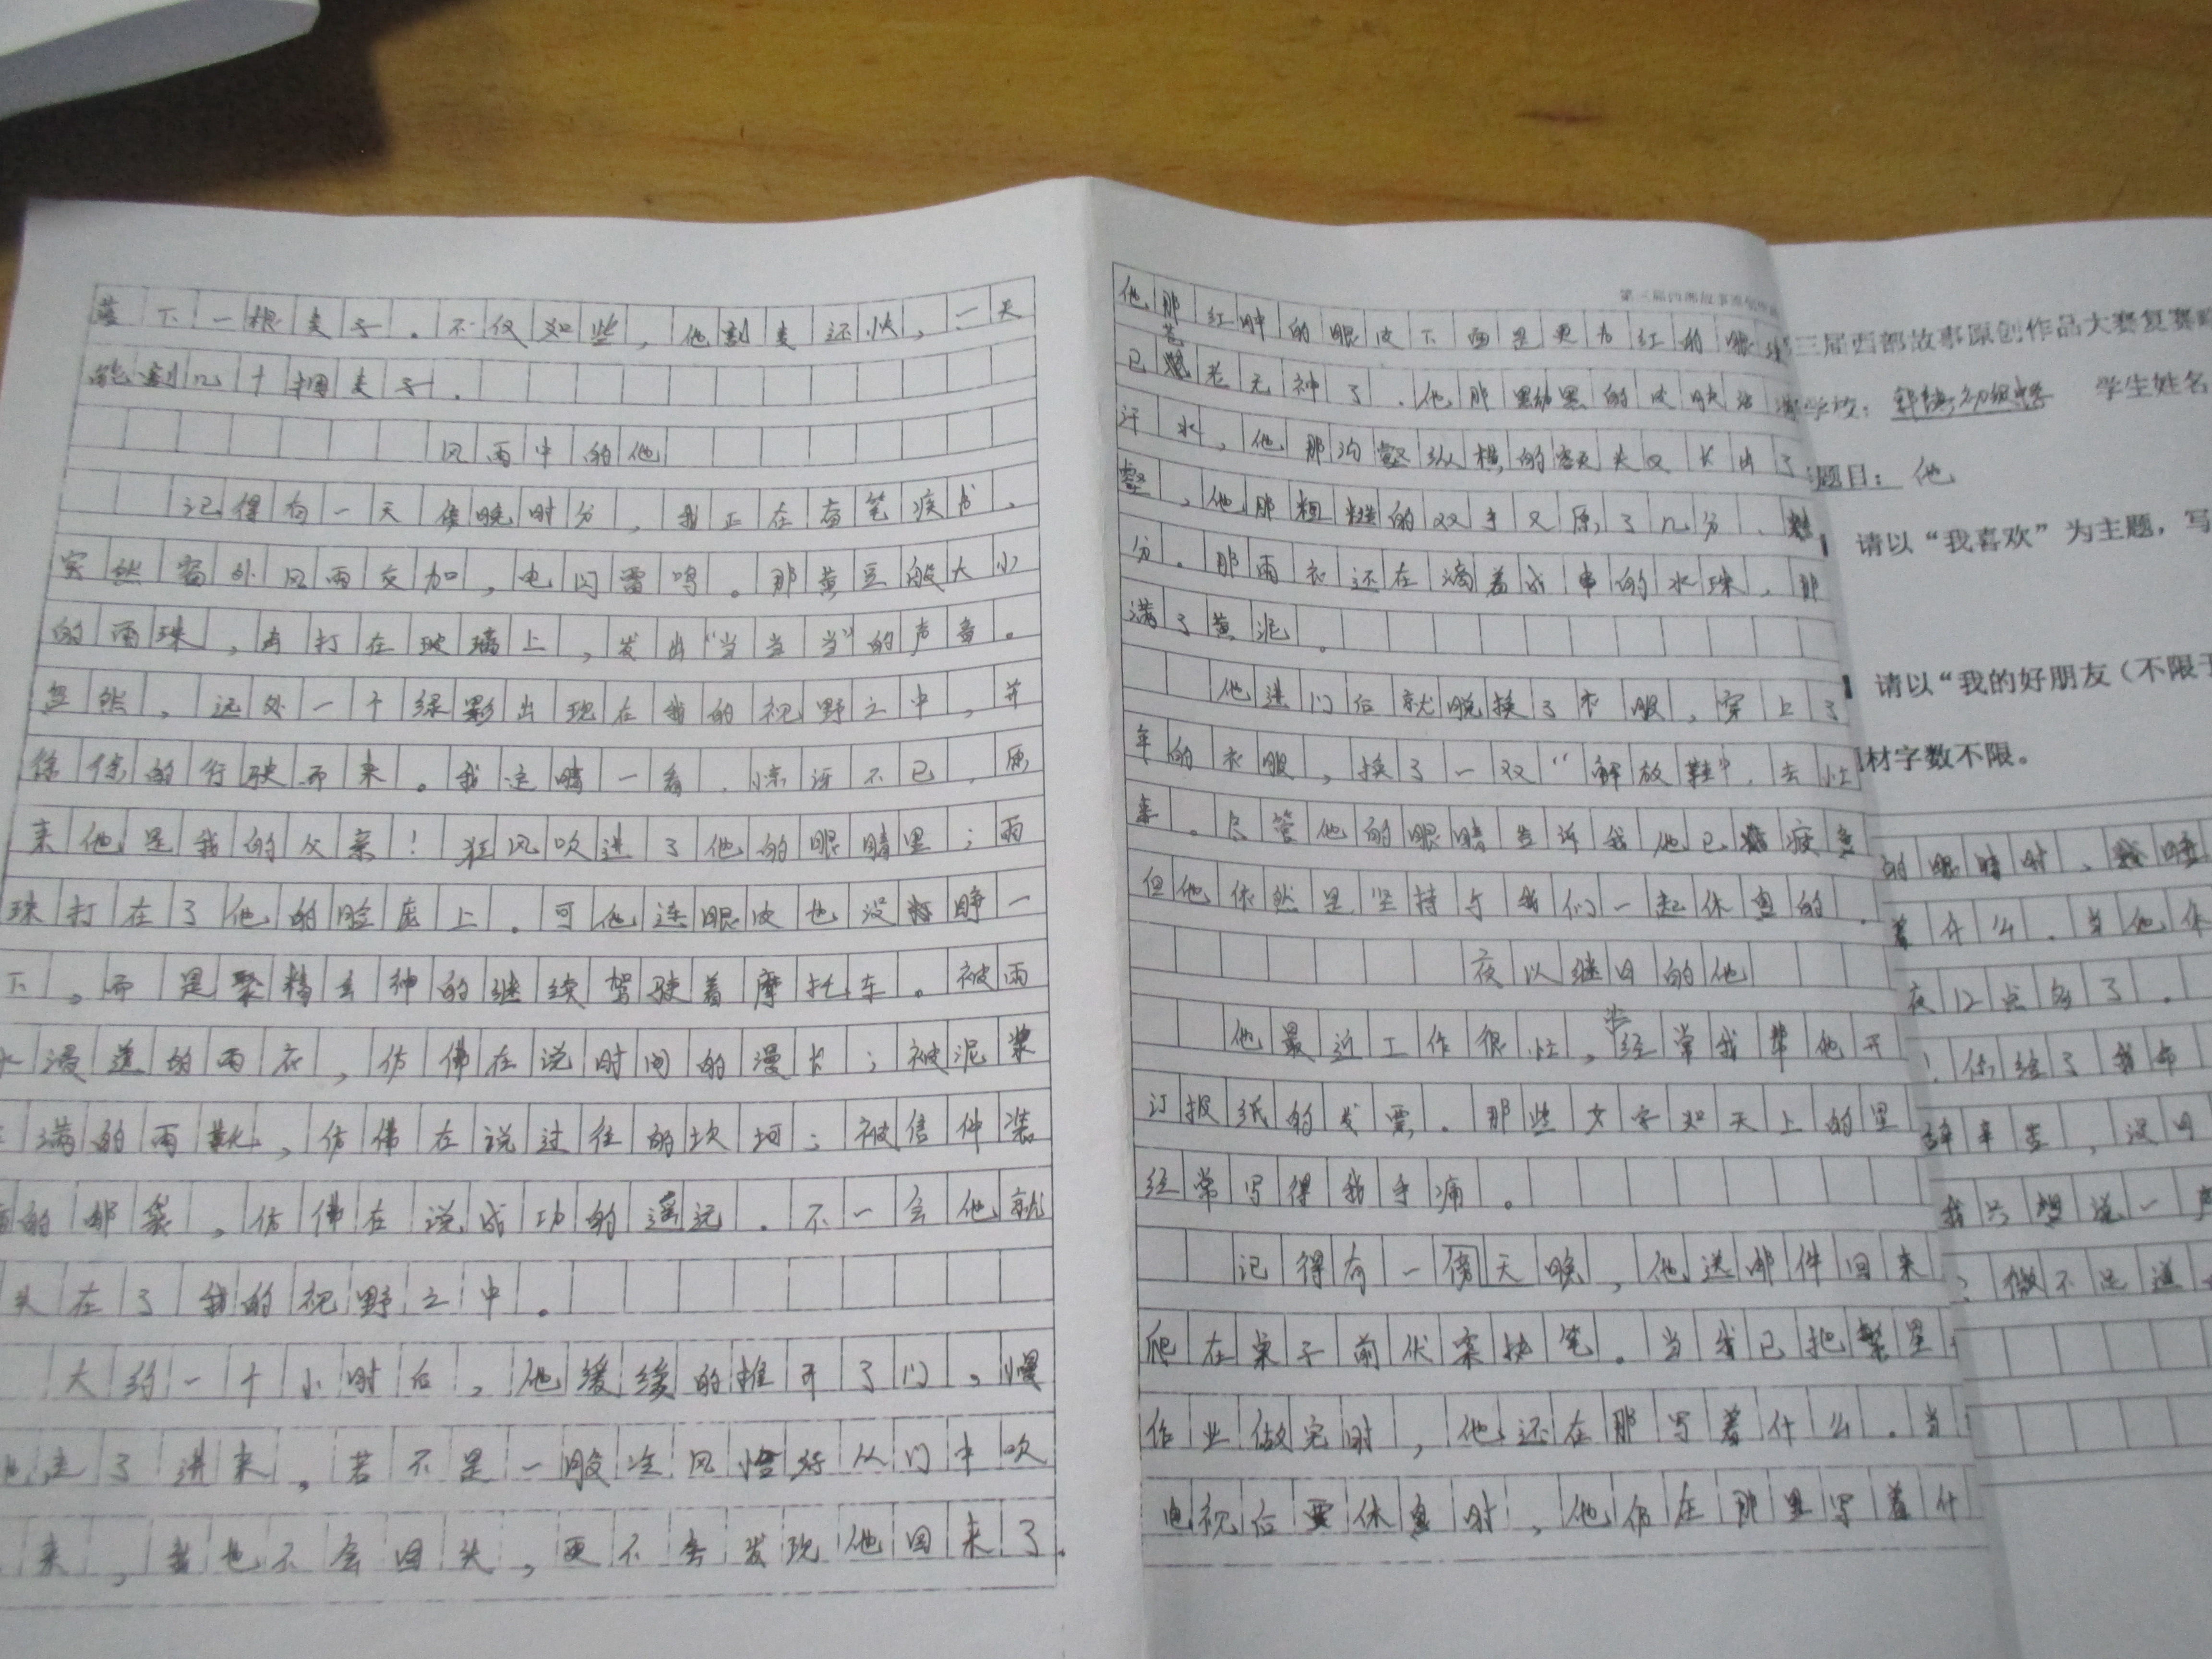 落下一根麦子。不仅如些，他割麦还快，一天
能割几十捆麦子。
风雨中的他
记得有一天傍晚时分，我正在奋笔疾书，
突然窗外风雨交加，电闪雷鸣。那黄豆般大小
的雨珠，击打在玻璃上，发出“当当当”的声音。
忽然，远处一个绿影出现在我的视野之中，并
徐徐的行驶而来。我定睛一看，惊讶不已，原
来他是我的父亲！狂风吹进了他的眼睛里；雨
珠打在了他的脸庞上。可他连眼皮也没睁一
下，而是聚精会神的继续驾驶着摩托车。被雨
水浸透的雨衣，仿佛在说时间的漫长；被泥浆
满的雨靴，仿佛在说过往的坎坷；被信件装
的邮袋，仿佛在说成功的遥远。不一会他就
失在了我的视野之中。
大约一个小时后，他缓缓的推开了门，慢
地走了进来。若不是一股冷风恰好从门中吹
来，我也不会回头，更不会发现他回来了。
第三届西部故事原创作品
他那红肿的眼皮下面是更为红的眼
已苍老无神了。他那黝黑的皮肤沾满
汗水，他那沟壑纵横的额头又长出了
壑，他那粗糙的双手又厚了几分、
分。那雨衣还在滴着成串的水珠，那
满了黄泥。
他进门后就脱换了衣服，穿上了
年的衣服，换了一双“解放鞋”，去忙
来。尽管他的眼睛告诉我他已疲惫
但他依然是坚持与我们一起休息的。
夜以继日的他
他最近工作很忙，经常我帮他开
订报纸的发票。那些文字如天上的星
经常写得我手痛。
记得有一傍天晚，他送邮件回来
爬在桌子前伏案执笔。当我已把繁星
作业做完时，他还在那写着什么。当
电视后要休息时，他仍在那里写着什
三届西部故事原创作品大赛复赛
学校： 初级中学 学生姓名
题目： 他
请以“我喜欢”为主题，写
请以“我的好朋友（不限于
材字数不限。
的眼睛时，我
着什么。当他休
夜12点多了。
！你给了我
辞辛苦，没日
我只想说一声
微不足道